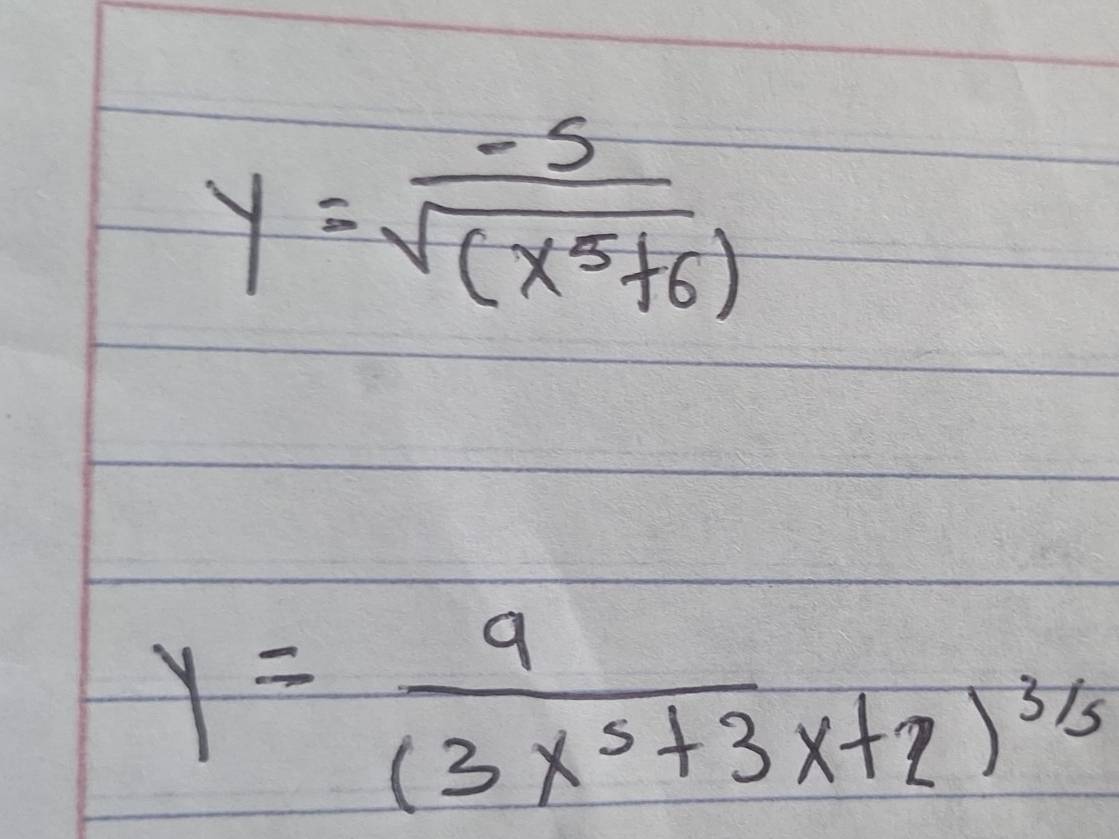 y = -5/√(x⁵+6)
y = 9/(3x⁵+3x+2)^3/5